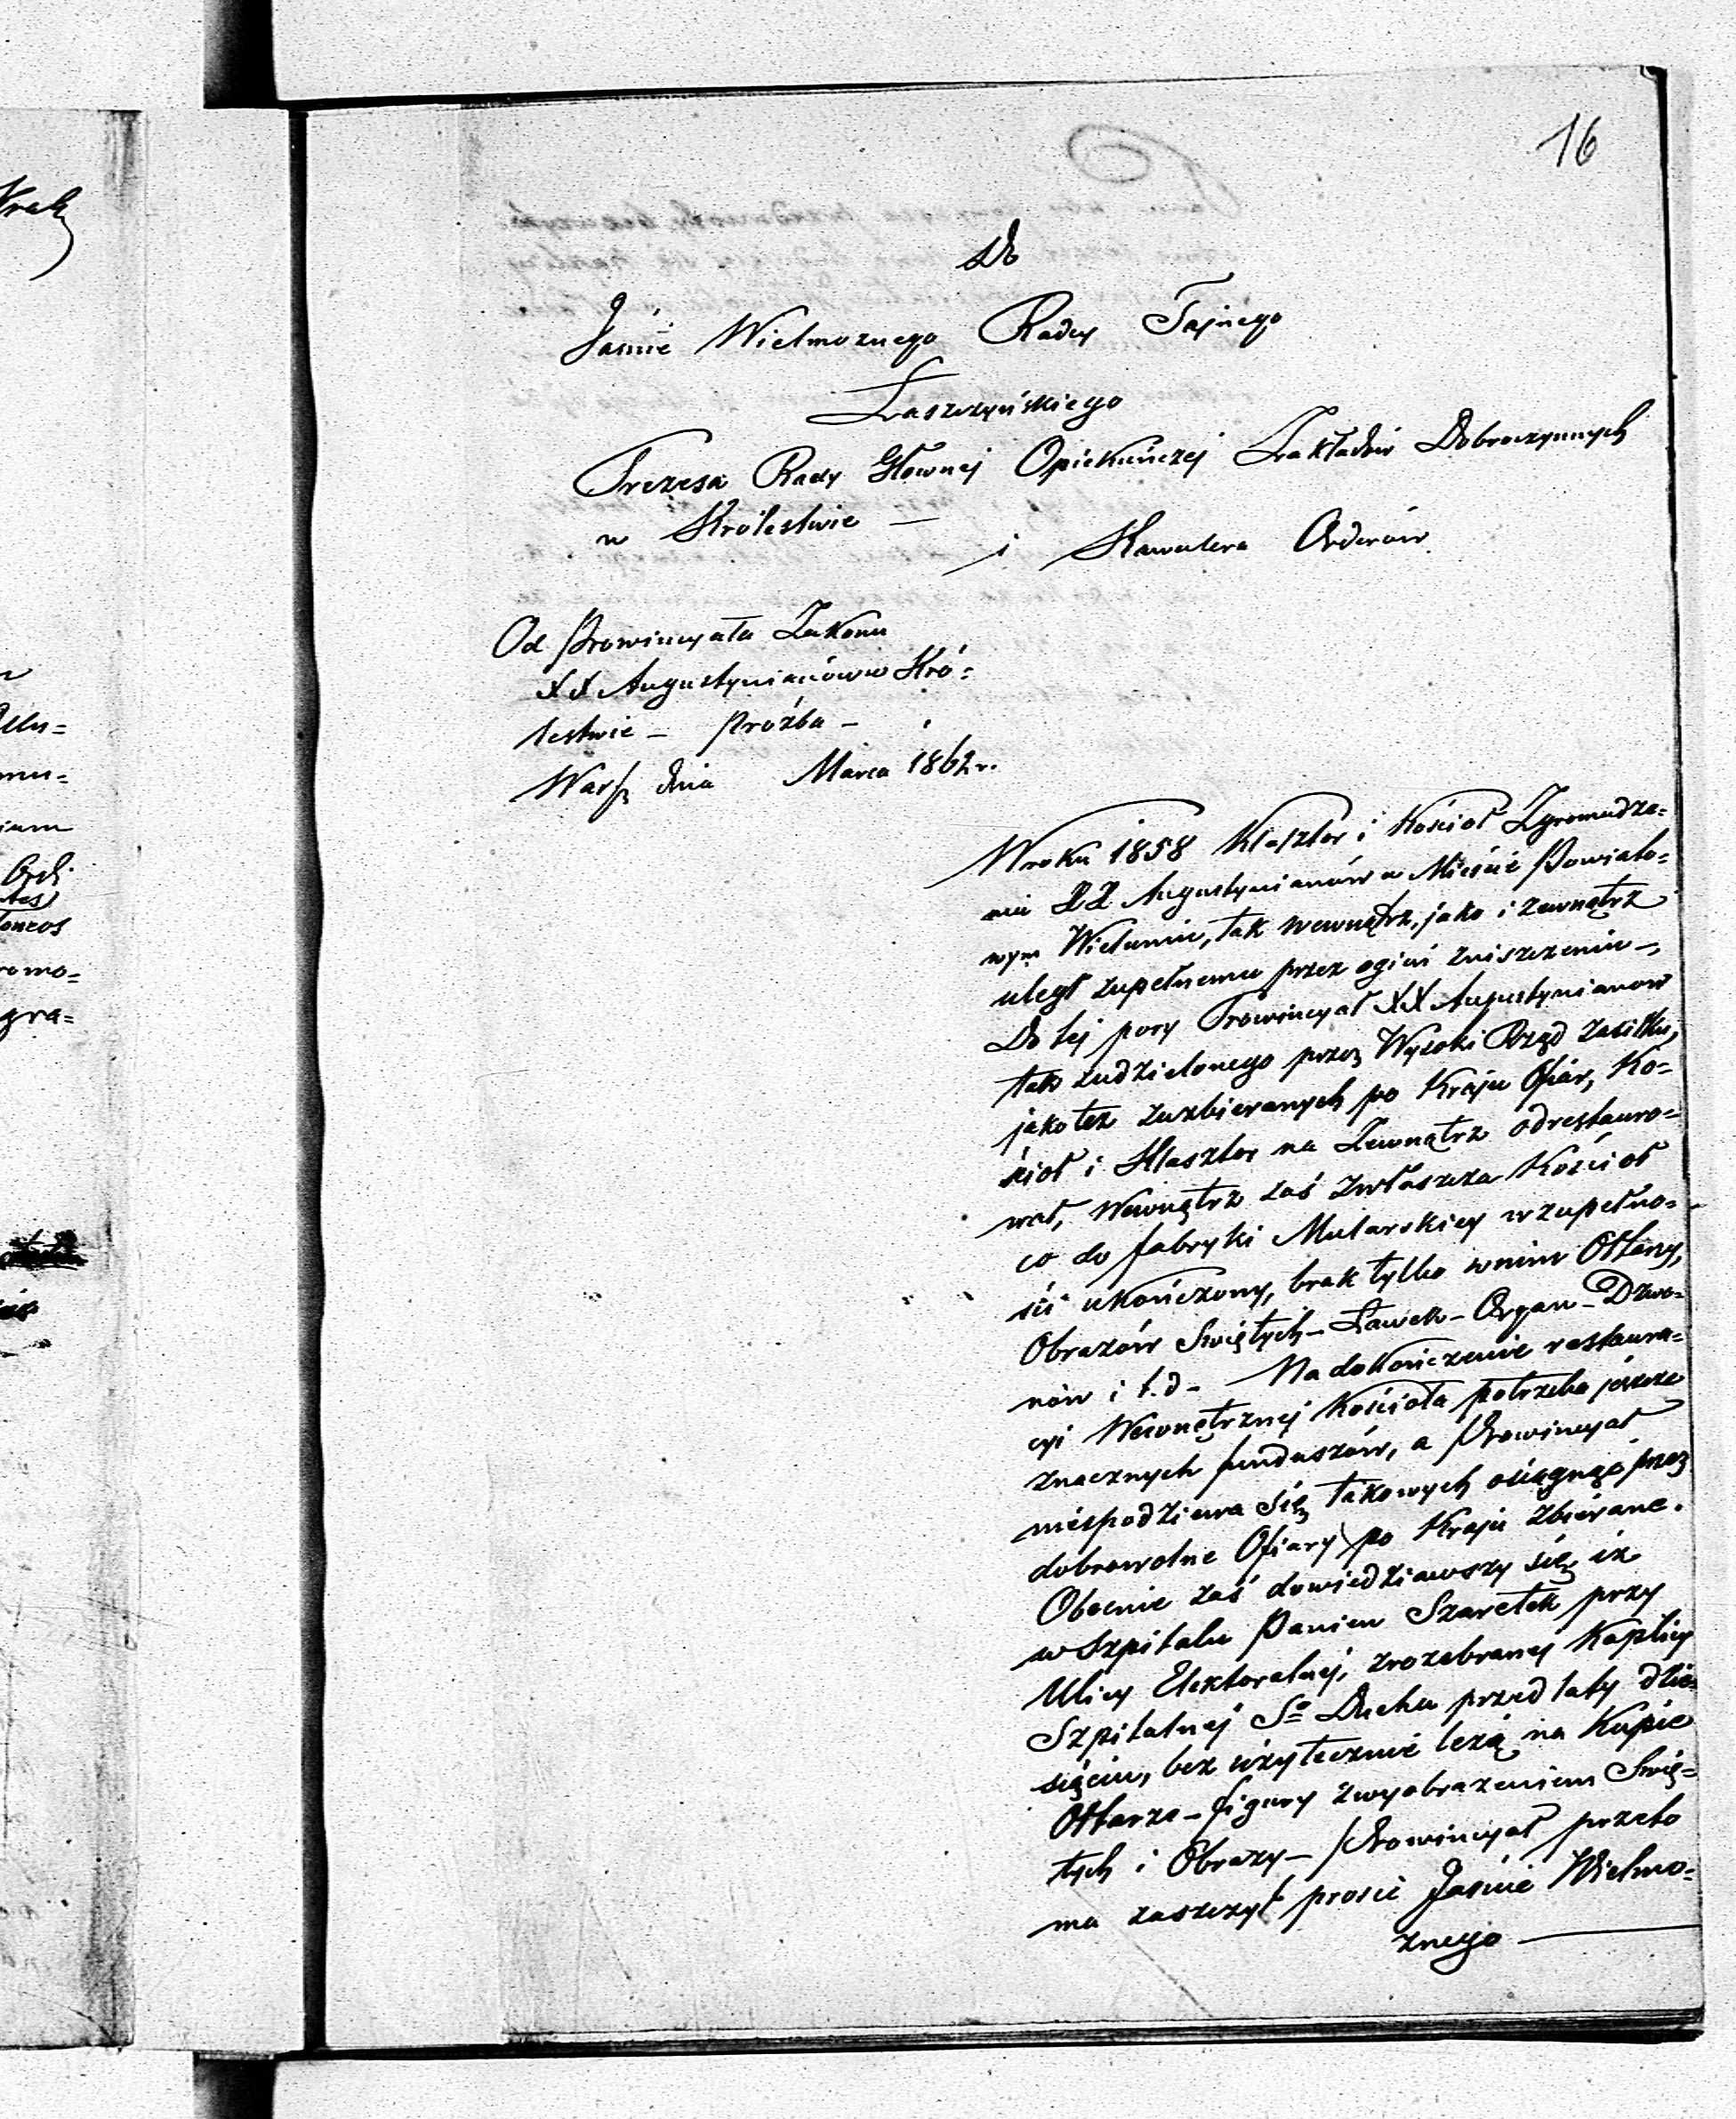 16
Do
Jaśnie Wielmoznego Radcy Tajnego
Łaszczyńskiego
Prezesa Rady Głownej Opiekuńczej Zakładów Dobroczynnych
w Królestwie —
i Kawalera Orderów
Od Prowincyała Zakonu
XX Augustynianów w Kró=
lestwie — Prośba —
Warsz dnia Marca 1862 r.
W roku 1858 Klasztor i Kościoł Zgromadze=
nia XX Augustynianów w Mieście Powiato=
wym Wieluniu, tak wewnątrz, jako i zewnątrz
uległ zupełnemu przez ogień zniszczeniu —,
Do tej pory Prowincyał XX Augustynianow
tak z udzielonego przez Wysoki Rząd zasiłku,
jako też z uzbieranych po Kraju Ofiar, Ko=
ścioł i Klasztor na Zewnątrz odrestauro=
wał, Wewnątrz zaś zwłaszcza Kościoł
co do fabryki Mularskiey w zupełno=
ści ukończony, brak tylko w nim Ołtarzy,
Obrazów Swiętych — Ławek — Organ — Dzwo=
nów i t. d — Na dokończenie restaura=
cyi Wewnątrznej Kościoła potrzeba jeszcze
znacznych funduszów, a Prowincyał
niespodziewa się takowych osiągnąć przez
dobrowolne Ofiary po Kraju zbierane.
Obecnie zaś dowiedziawszy się iż
w Szpitalu Panien Szaretek przy
Ulicy Elektoralnej, z rozebraney Kaplicy
Szpitalnej Sgo Ducha przed laty dzie=
sięciu, bez użytecznie leżą na Kupie
Ołtarze — figury z wyobrażeniem Swię=
tych i Obrazy — Prowincyał przeto
ma zaszczyt prosić Jaśnie Wielmo=
znego —